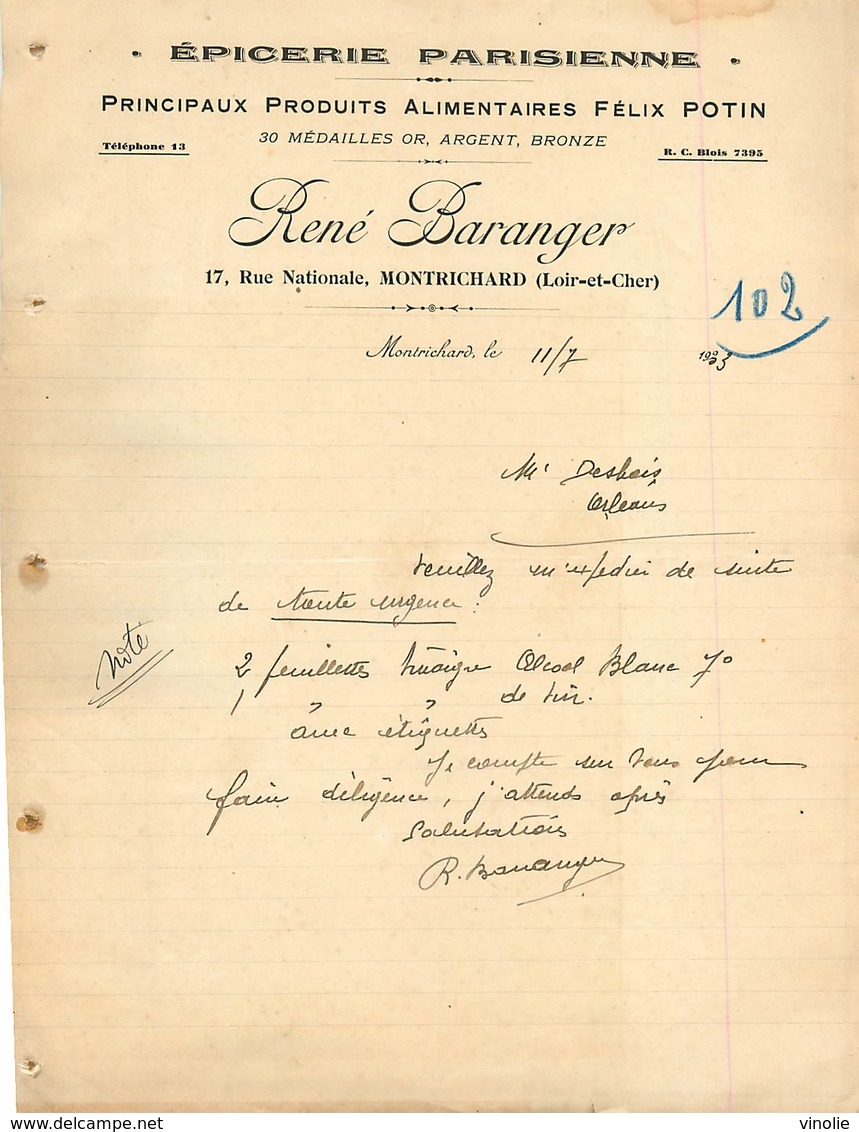 · ÉPICERIE PARISIENNE ·
PRINCIPAUX PRODUITS ALIMENTAIRES FÉLIX POTIN
30 MÉDAILLES OR, ARGENT, BRONZE
Téléphone 13
R. C. Blois 7395
René Baranger
17, Rue Nationale, MONTRICHARD (Loir-et-Cher)
102
Montrichard, le 11/7 1933
Mr Desbois
Orléans
Veuillez m'expédier de suite
de toute urgence :
Noté
2 feuillettes Vinaigre Alcool Blanc 7°
1 " " de Vin.
avec étiquettes
Je compte sur vous pour
faire diligence, j'attends après
Salutations
R. Baranger
www.delcampe.net
vinolie